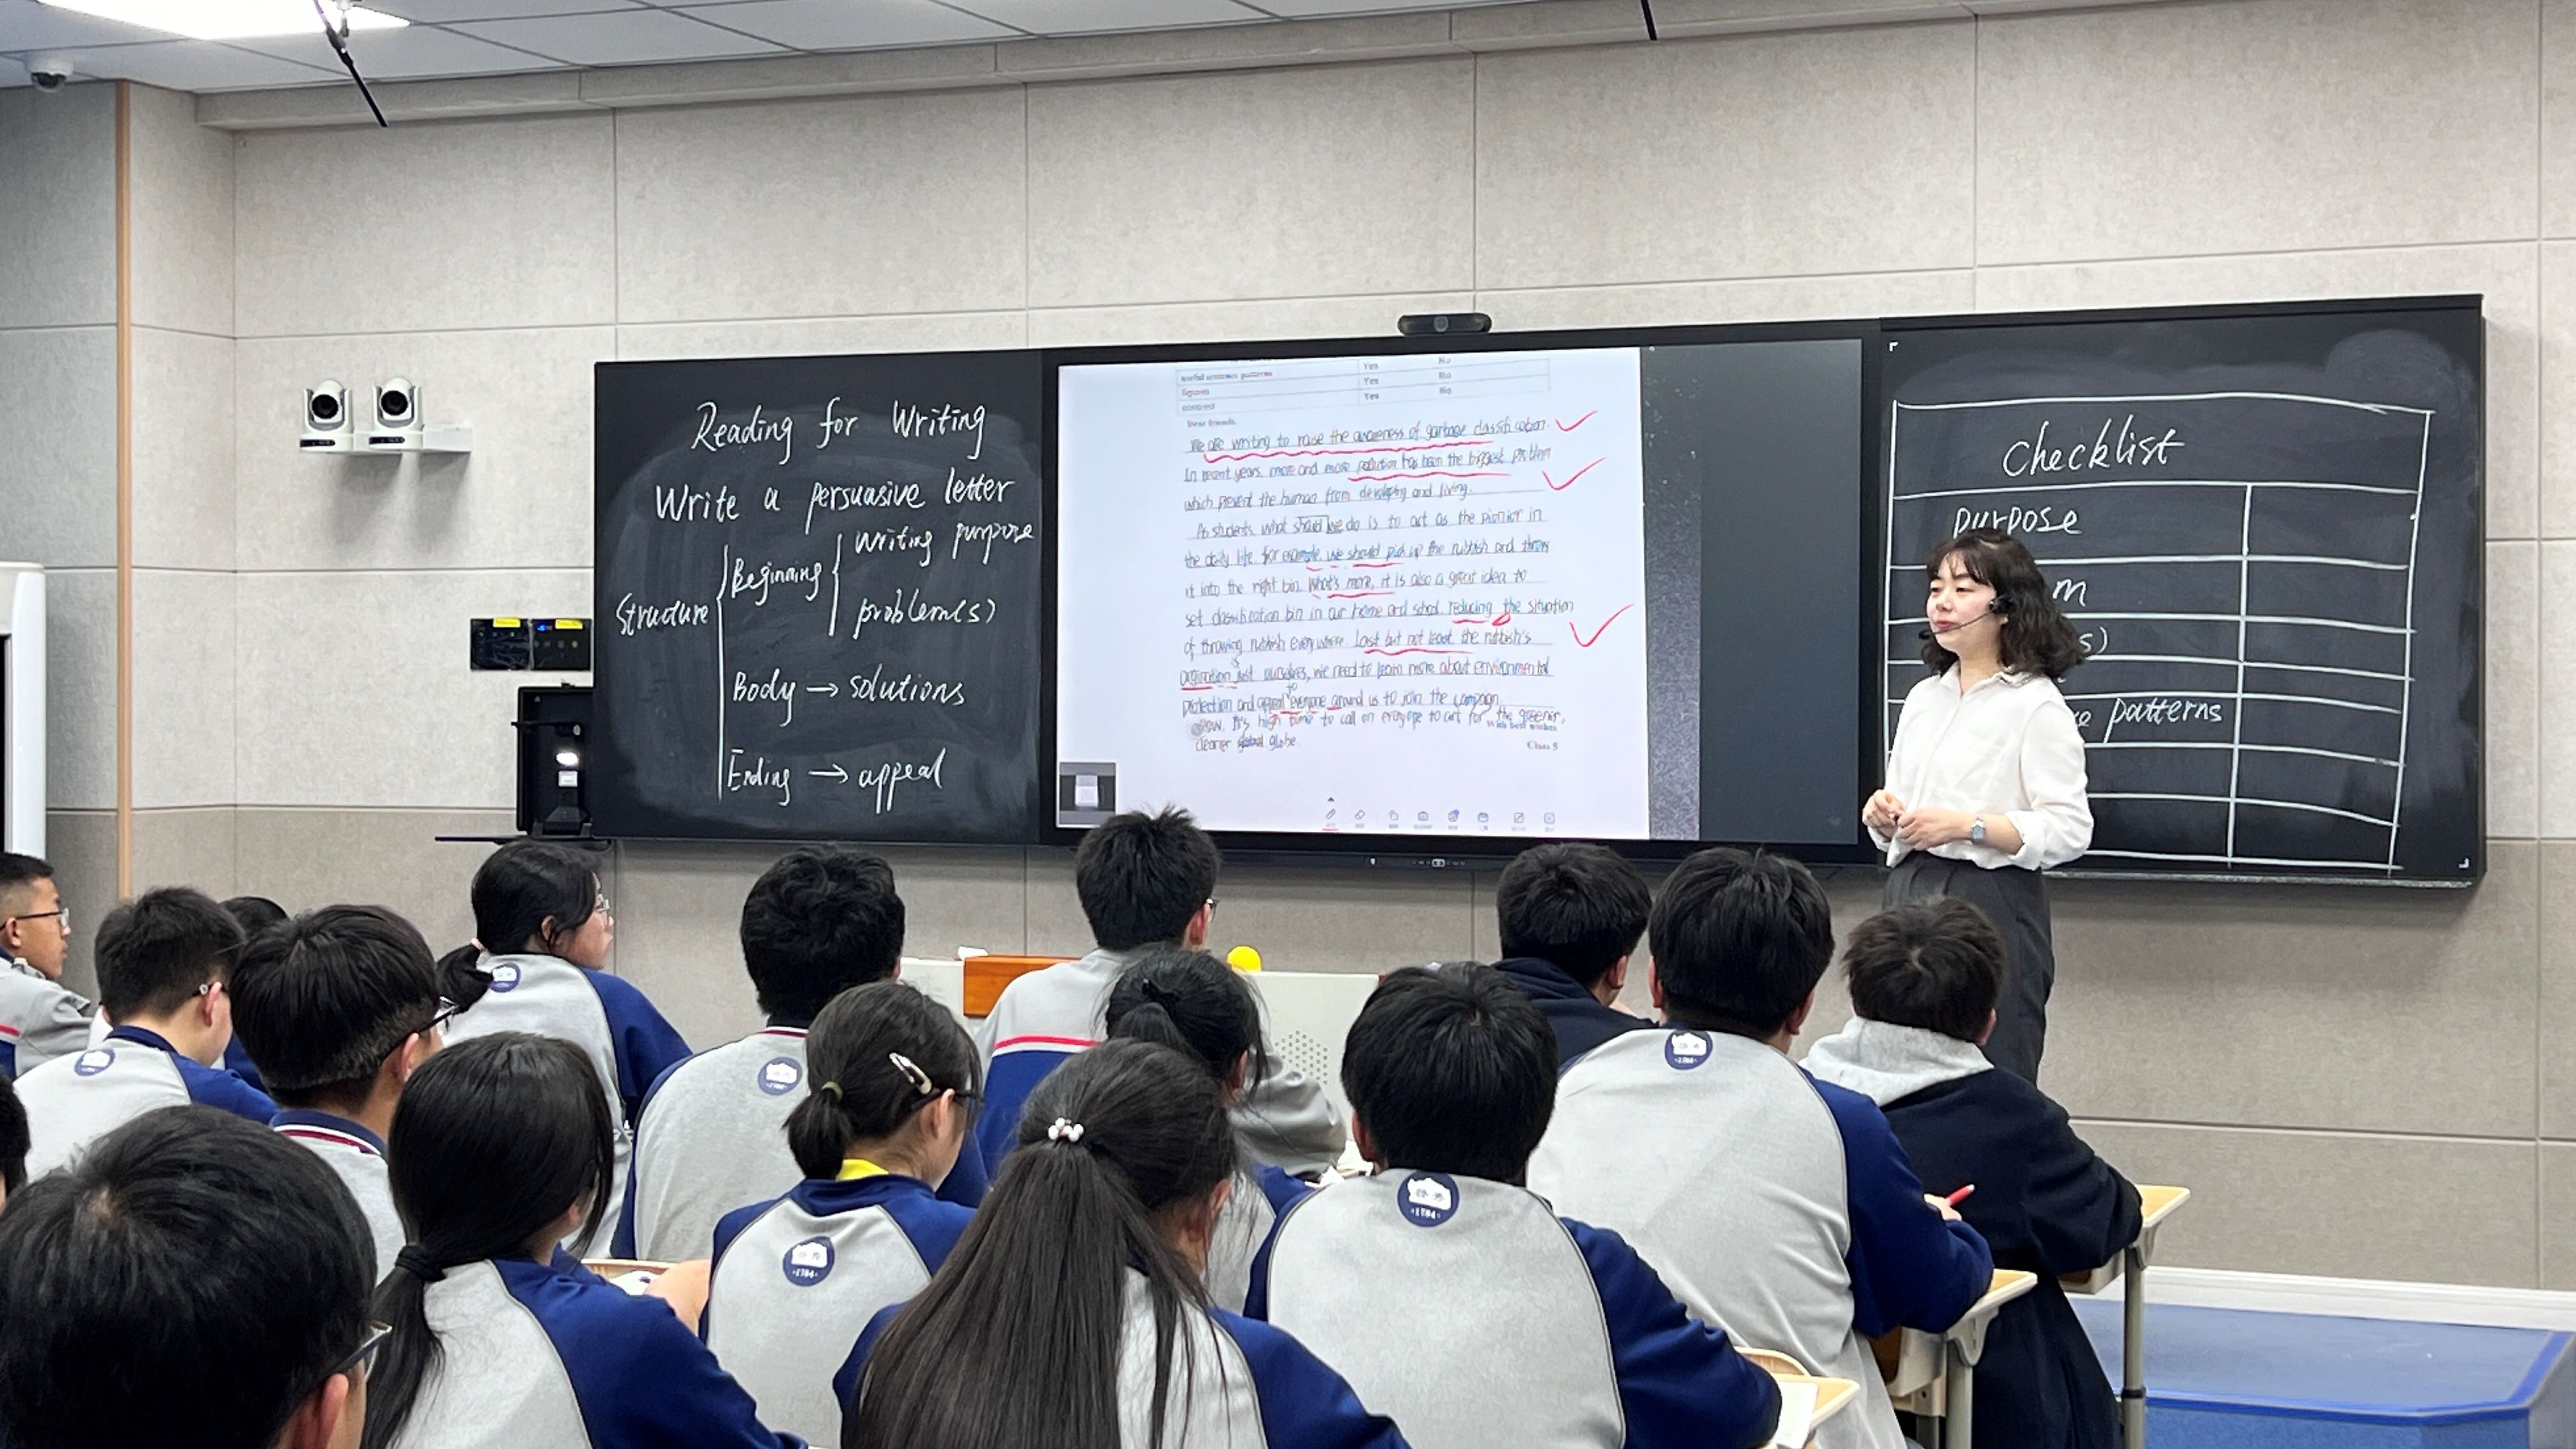 Reading for Writing
Write a persuasive letter
Structure
Beginning
Writing purpose
problem(s)
Body → solutions
Ending → appeal
useful sentence patterns Yes No
figures Yes No
contrast Yes No
Dear friends,
We are writing to raise the awareness of garbage classification.
In recent years, more and more pollution has been the biggest problem
which prevent the human from developing and living.
As students, what should we do is to act as the pionior in
the daily life. for example, we should pick up the rubbish and throw
it into the right bin. What's more, it is also a great idea to
set classification bin in our home and school, reducing the situation
of throwing rubbish everywhere. Last but not least the rubbish's
origination is just ourselves, we need to learn more about environmental
protection and appeal to everyone around us to join the campaign
Now, It's high time to call on everyone to act for the greener,
With best wishes
cleaner globe.
Class 5
Checklist
purpose
m
s)
patterns
1784
1784
1784